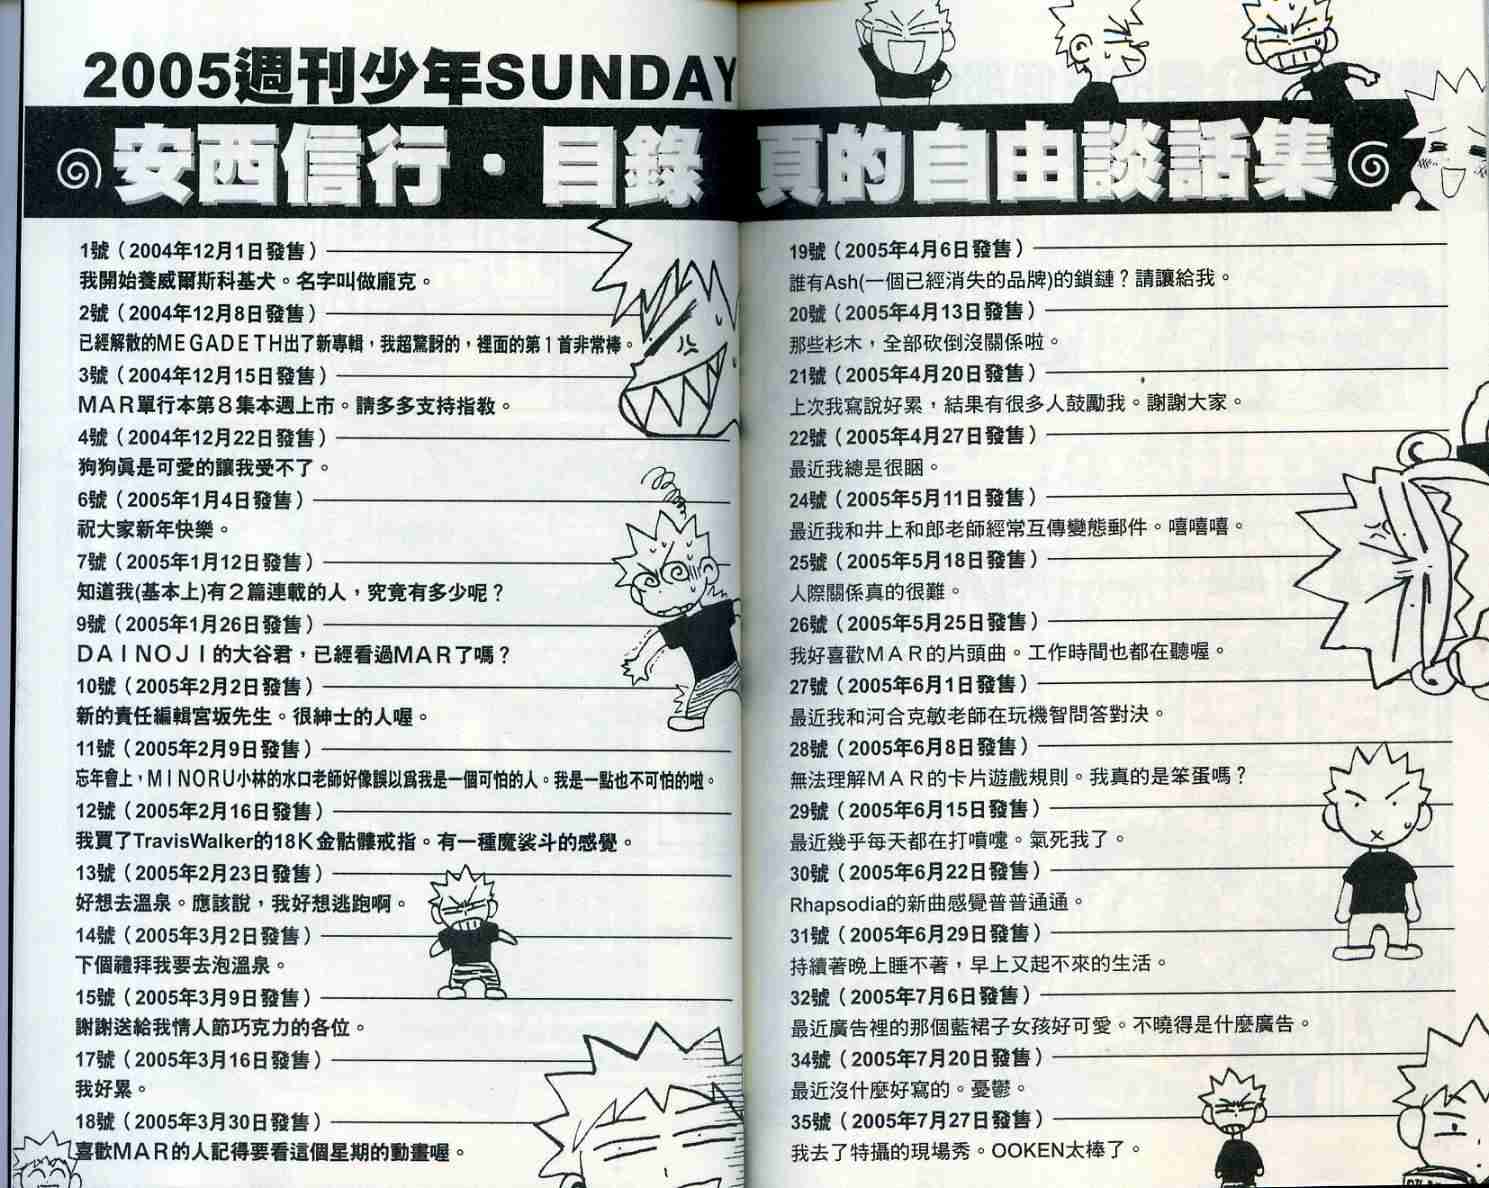 2005週刊少年SUNDAY
安西信行・目錄頁的自由談話集
1號（2004年12月1日發售）
我開始養威爾斯科基犬。名字叫做龐克。
2號（2004年12月8日發售）
已經解散的MEGADETH出了新專輯，我超驚訝的，裡面的第1首非常棒。
3號（2004年12月15日發售）
MAR單行本第8集本週上市。請多多支持指教。
4號（2004年12月22日發售）
狗狗真是可愛的讓我受不了。
6號（2005年1月4日發售）
祝大家新年快樂。
7號（2005年1月12日發售）
知道我(基本上)有2篇連載的人，究竟有多少呢？
9號（2005年1月26日發售）
DAINOJI的大谷君，已經看過MAR了嗎？
10號（2005年2月2日發售）
新的責任編輯宮坂先生。很紳士的人喔。
11號（2005年2月9日發售）
忘年會上，MINORU小林的水口老師好像誤以為我是一個可怕的人。我是一點也不可怕的啦。
12號（2005年2月16日發售）
我買了TravisWalker的18K金骷髏戒指。有一種魔裟斗的感覺。
13號（2005年2月23日發售）
好想去溫泉。應該說，我好想逃跑啊。
14號（2005年3月2日發售）
下個禮拜我要去泡溫泉。
15號（2005年3月9日發售）
謝謝送給我情人節巧克力的各位。
17號（2005年3月16日發售）
我好累。
18號（2005年3月30日發售）
喜歡MAR的人記得要看這個星期的動畫喔。
19號（2005年4月6日發售）
誰有Ash(一個已經消失的品牌)的鎖鏈？請讓給我。
20號（2005年4月13日發售）
那些杉木，全部砍倒沒關係啦。
21號（2005年4月20日發售）
上次我寫說好累，結果有很多人鼓勵我。謝謝大家。
22號（2005年4月27日發售）
最近我總是很睏。
24號（2005年5月11日發售）
最近我和井上和郎老師經常互傳變態郵件。嘻嘻嘻。
25號（2005年5月18日發售）
人際關係真的很難。
26號（2005年5月25日發售）
我好喜歡MAR的片頭曲。工作時間也都在聽喔。
27號（2005年6月1日發售）
最近我和河合克敏老師在玩機智問答對決。
28號（2005年6月8日發售）
無法理解MAR的卡片遊戲規則。我真的是笨蛋嗎？
29號（2005年6月15日發售）
最近幾乎每天都在打噴嚏。氣死我了。
30號（2005年6月22日發售）
Rhapsodia的新曲感覺普普通通。
31號（2005年6月29日發售）
持續著晚上睡不著，早上又起不來的生活。
32號（2005年7月6日發售）
最近廣告裡的那個藍裙子女孩好可愛。不曉得是什麼廣告。
34號（2005年7月20日發售）
最近沒什麼好寫的。憂鬱。
35號（2005年7月27日發售）
我去了特攝的現場秀。OOKEN太棒了。